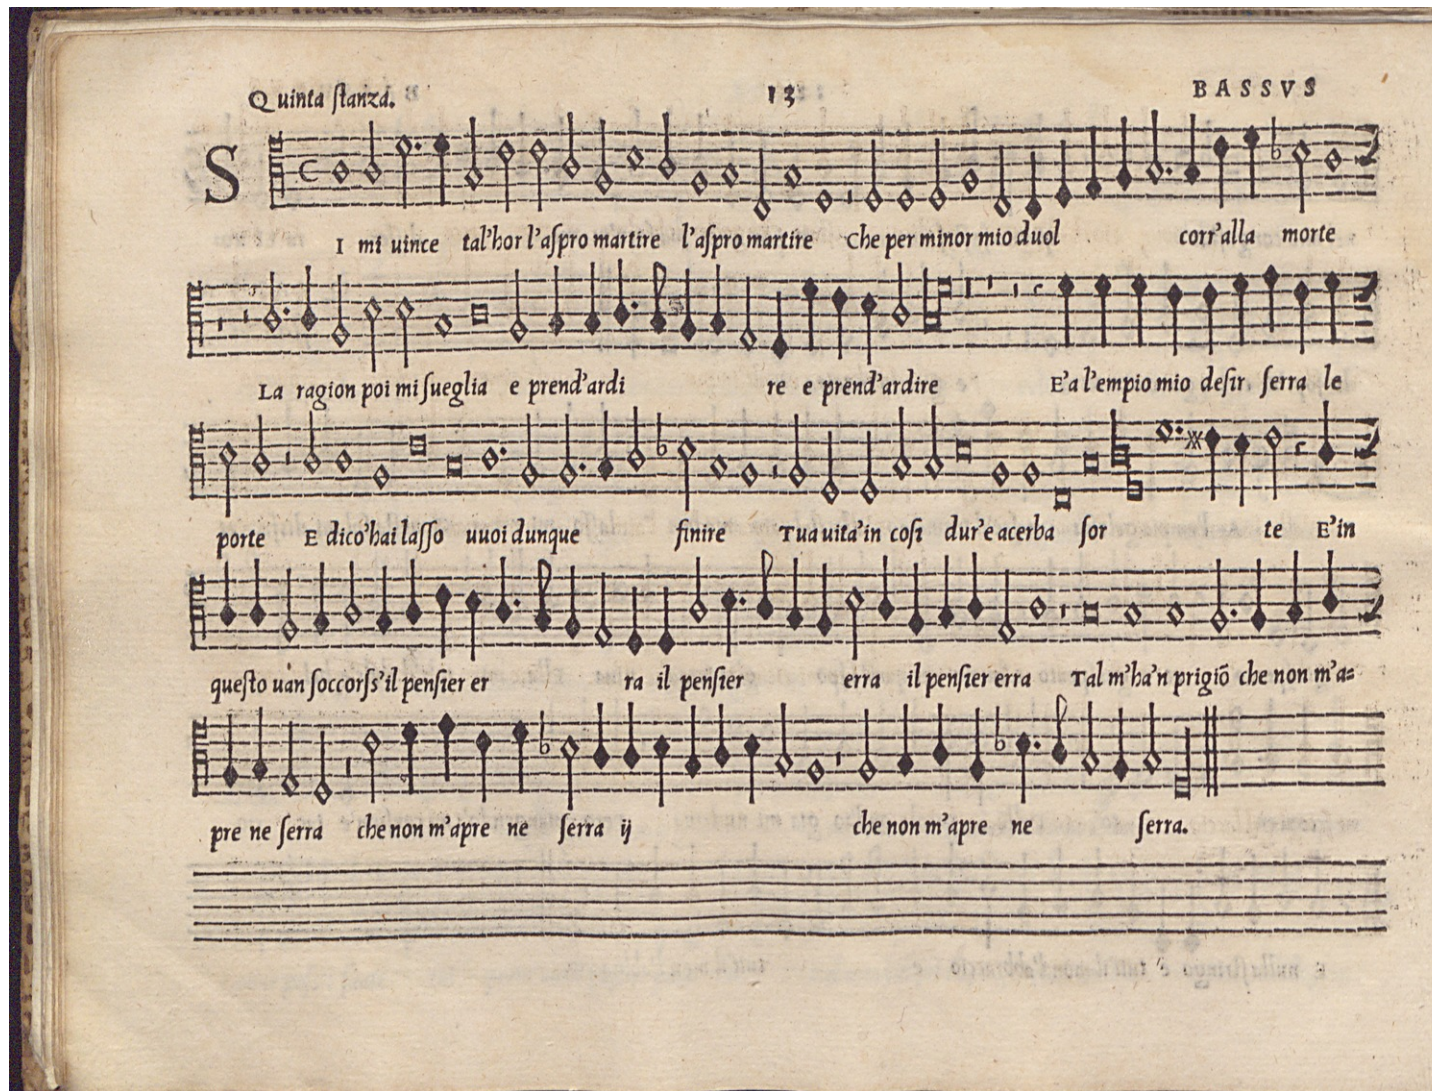 Quinta ſtanza. 13 BASSVS
SI mi uince tal'hor l'aſpro martire l'aſpro martire Che per minor mio duol corr'alla morte
La ragion poi mi ſueglia e prend'ardi re e prend'ardire E'a l'empio mio deſir ſerra le
porte E dico'hai laſſo uuoi dunque finire Tua uita'in coſi dur'e acerba ſor te E'in
queſto uàn ſoccorſs'il penſier er ra il penſier erra il penſier erra Tal m'ha'n prigiō che non m'a=
pre ne ſerra che non m'apre ne ſerra ij che non m'apre ne ſerra.